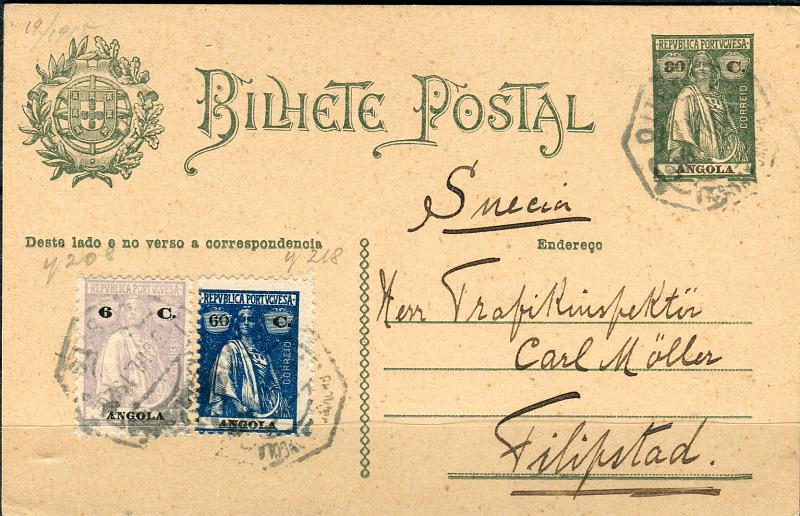 19/1915
BILHETE POSTAL
REPVBLICA PORTVGVESA
30 C.
CORREIO
ANGOLA
Suecia
Deste lado e no verso a correspondencia
Endereço
y 208
y 218
REPVBLICA PORTVGVESA
6 C.
ANGOLA
REPVBLICA PORTVGVESA
60 C.
CORREIO
ANGOLA
Herr Trafikinspektör
Carl Möller
Filipstad.